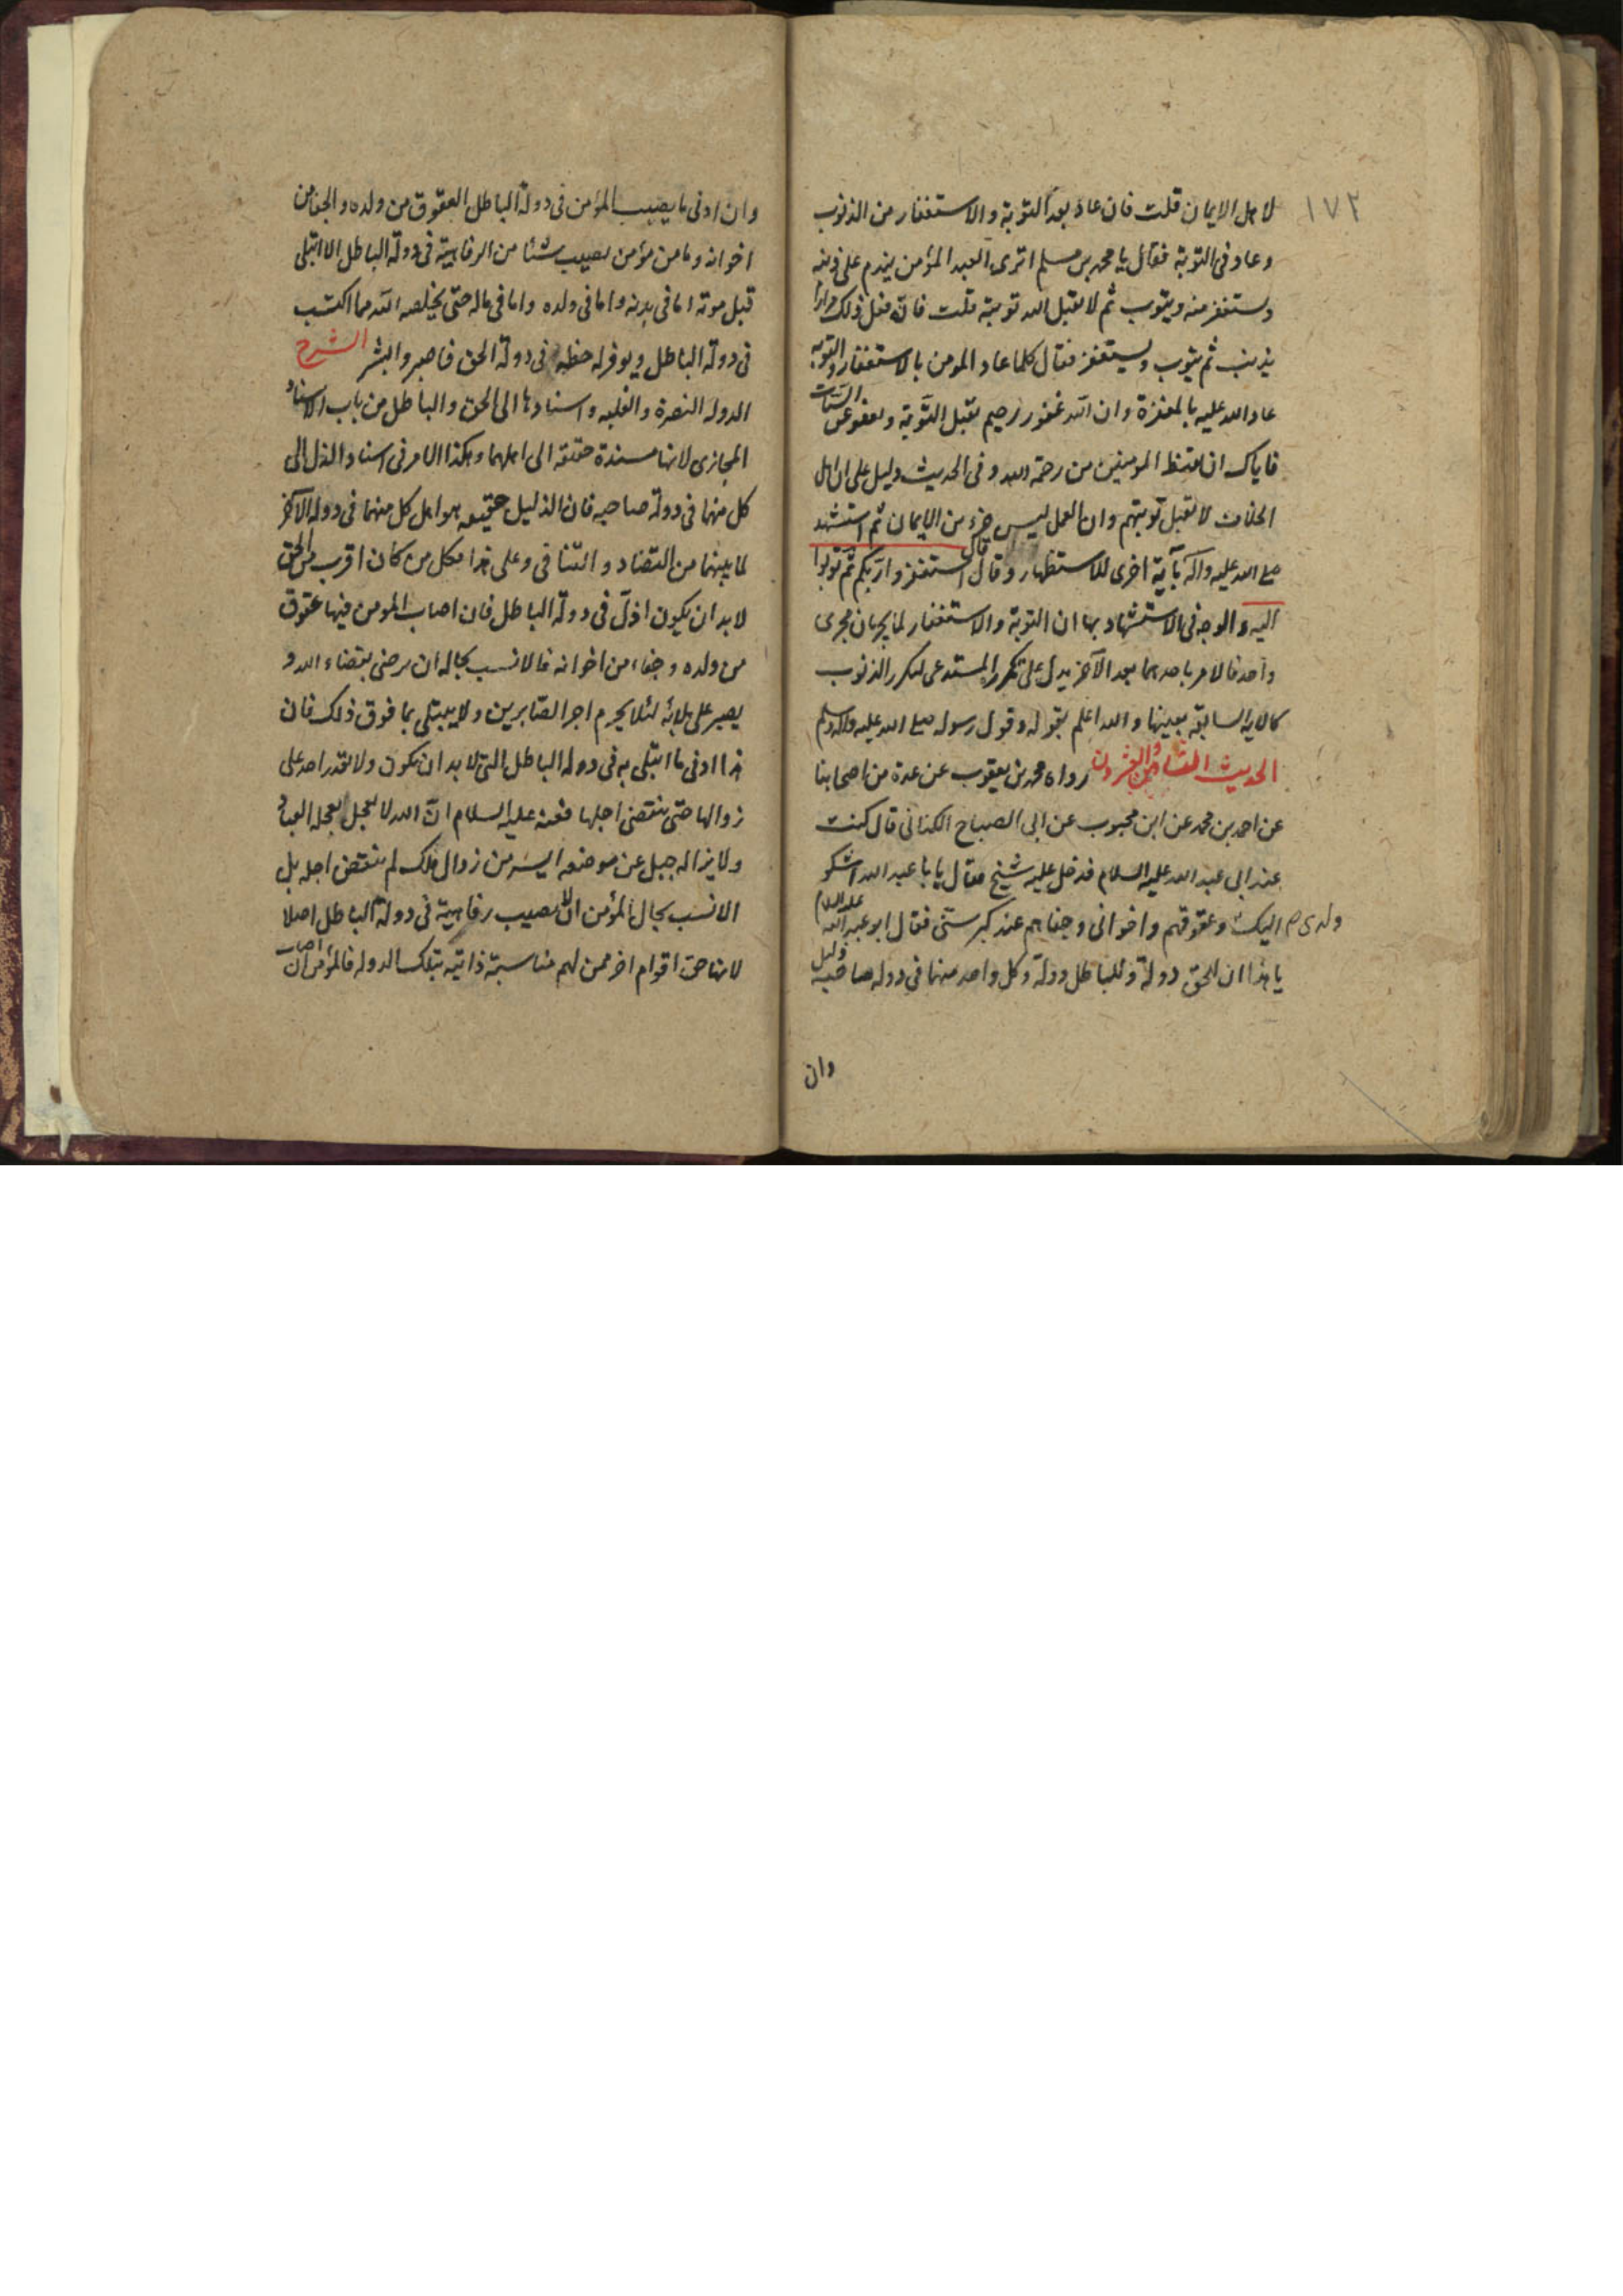 ١٧٢
لاهل الايمان قلت فان عاد بعد التوبة والاستغفار من الذنوب
وعاد في التوبة فقال يا محمد بن مسلم اترى العبد المؤمن يندم على ذنبه
ويستغفر منه ويتوب ثم لا يقبل الله توبته قلت فانه فعل ذلك مرارا
يذنب ثم يتوب ويستغفر فقال كلما عاد المومن بالاستغفار والتوبه
عاد الله عليه بالمغفرة وان الله غفور رحيم يقبل التوبة ويعفو عن السيات
فاياك ان تقنط المومنين من رحمة الله وفي الحديث دليل على ان اهل
الخلاف لا تقبل توبتهم وان العمل ليس جزء من الايمان ثم استشهد
صلى الله عليه واله بآية اخرى للاستظهار وقال قال استغفروا ربكم ثم توبوا
اليه والوجه في الاستشهاد بها ان التوبة والاستغفار لما يجريان مجرى
واحد فالامر باحدهما بعد الآخر يدل على تكرر المستدعى لتكرر الذنوب
كالايه السابقه بعينها والله اعلم بقوله وقول رسوله صلى الله عليه واله وسلم
الحديث الثامن والعشرون رواه محمد بن يعقوب عن عدة من اصحابنا
عن احمد بن محمد عن ابن محبوب عن ابي الصباح الكناني قال كنت
عند ابي عبد الله عليه السلام فدخل عليه شيخ فقال يا با عبد الله اشكو
اليك ولدى وعقوقهم واخواني وجفاهم عند كبر سنى فقال ابو عبد الله عليه السلام
يا هذا ان للحق دولة وللباطل دولة وكل واحد منهما في دوله صاحبه ذليل
وان
وان ادنى ما يصيب المؤمن في دولة الباطل العقوق من ولده والجفا من
اخوانه وما من مؤمن يصيب شئا من الرفاهية في دولة الباطل الا ابتلى
قبل موته اما في بدنه واما في ولده واما في ماله حتى يخلصه الله مما اكتسب
في دولة الباطل ويوفر له حظه في دولة الحق فاصبر وابشر الشرح
الدوله النصرة والغلبه واسنادها الى الحق والباطل من باب الاسناد
المجازى لانها مسندة حقيقه الى اهلهما وهكذا الامر في اسناد الذل الى
كل منهما في دولة صاحبه فان الذليل حقيقه هو اهل كل منهما في دوله الآخر
لما بينهما من التضاد والتنافى وعلى هذا فكل من كان اقرب من الحق
لابد ان يكون اذل في دولة الباطل فان اصاب المومن فيها عقوق
من ولده وجفاء من اخوانه فالانسب بحاله ان يرضى بقضاء الله و
يصبر على بلائه لئلا يحرم اجر الصابرين ولا يبتلى بما فوق ذلك فان
هذا ادنى ما ابتلى به في دوله الباطل التي لابد ان يكون ولا يقدر احد على
زوالها حتى ينقضى اجلها فعنه عليه السلام ان الله لا يعجل لعجله العباد
ولا يزاله جبل عن موضعه ايسر من زوال ملك لم ينقض اجله بل
الانسب بحال المؤمن ان لا يصيب رفاهية في دولة الباطل اصلا
لانها حق اقوام اخر ممن لهم مناسبة ذاتيه بتلك الدوله فالمؤمن ان اصاب